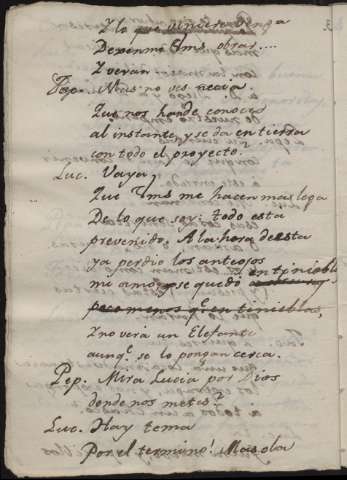 Y lo que viniere venga
Dexenme Vms. obrar....
Y veran
Pep. Mas no ves necia
Que nos han de conocer
al instante, y se da en tierra
con todo el proyecto.
Luc. Vaya,
Que Vms me hacen mas lega
De lo que soy: todo esta
prevenido. A la hora de esta
ya perdio los anteojos
mi amo, y se quedó en tinieblas
poco menos q.e en tinieblas,
y no verá un Elefante
aunq.e se lo pongan cerca.
Pep. Mira Lucia por Dios
donde nos metes?
Luc. Hay tema
Por el termino! Mas ola